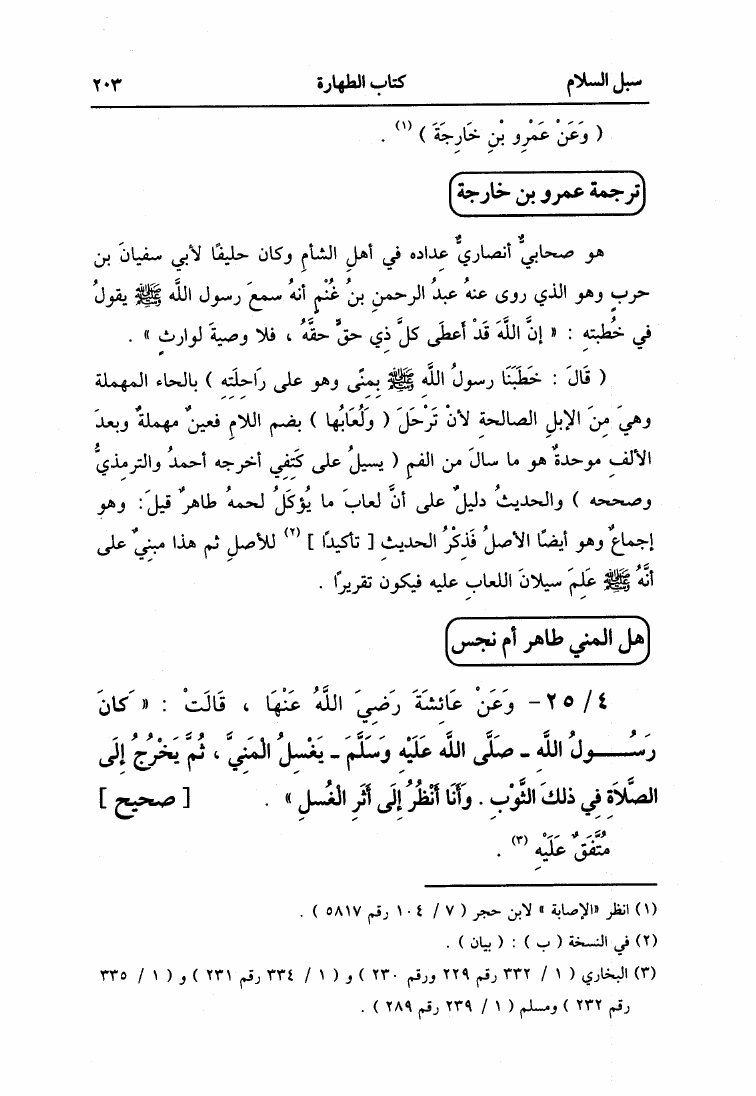 سبل السلام كتاب الطهارة ٢٠٣
( وَعَنْ عَمْرِو بْنِ خَارِجَةَ ) (١) .
ترجمة عمرو بن خارجة
هو صحابيٌّ أنصاريٌّ عِداده في أهلِ الشأمِ وكان حليفًا لأبي سفيانَ بن
حربٍ وهو الذي روى عنهُ عبدُ الرحمنِ بنُ غُنْمٍ أنهُ سمعَ رسول اللَّه ﷺ يقولُ
في خُطبتهِ : « إنَّ اللَّهَ قَدْ أعطَى كلَّ ذي حقٍّ حقَّهُ ، فلا وصيةَ لوارثٍ » .
( قَالَ : خَطَبَنَا رسولُ اللَّهِ ﷺ بِمنًى وهو على رَاحلَتِهِ ) بالحاء المهملة
وهيَ مِنَ الإبلِ الصالحةِ لأنْ تَرْحَلَ ( ولُعَابُها ) بضم اللامِ فعينٌ مهملةٌ وبعدَ
الألفِ موحدةٌ هو ما سالَ من الفمِ ( يسيلُ على كَتِفي أخرجه أحمدُ والترمذيُّ
وصححه ) والحديثُ دليلٌ على أنَّ لعابَ ما يُؤكَلُ لحمهُ طاهرٌ قيلَ: وهو
إجماعٌ وهو أيضًا الأصلُ فَذِكْرُ الحديثِ [ تأكيدًا ] (٢) للأصلِ ثم هذا مبنيٌ على
أنَّهُ ﷺ عَلِمَ سيلانَ اللعابِ عليه فيكون تقريرًا .
هل المني طاهر أم نجس
٤/ ٢٥ - وَعَنْ عَائِشَةَ رَضِيَ اللَّهُ عَنْهَا ، قَالَتْ : « كَانَ
رَسُـــولُ اللَّهِ ـ صَلَّى اللَّه عَلَيْهِ وَسَلَّمَ ـ يَغْسِلُ الْمَنِيَّ ، ثُمَّ يَخْرُجُ إِلَى
الصَّلاَةِ فِي ذلكَ الثَّوْبِ . وَأَنَا أَنْظُرُ إِلَى أَثَرِ الْغُسلِ » . [ صحيح ]
مُتَّفَقٌ عَلَيْهِ (٣) .
(١) انظر «الإصابة » لابن حجر ( ٧ / ١٠٤ رقم ٥٨١٧ ) .
(٢) في النسخة ( ب ) : ( بيان ) .
(٣) البخاري ( ١ / ٣٣٢ رقم ٢٢٩ ورقم ٢٣٠ ) و ( ١ / ٣٣٤ رقم ٢٣١ ) و ( ١ / ٣٣٥
رقم ٢٣٢ ) ومسلم ( ١ / ٢٣٩ رقم ٢٨٩ ) .